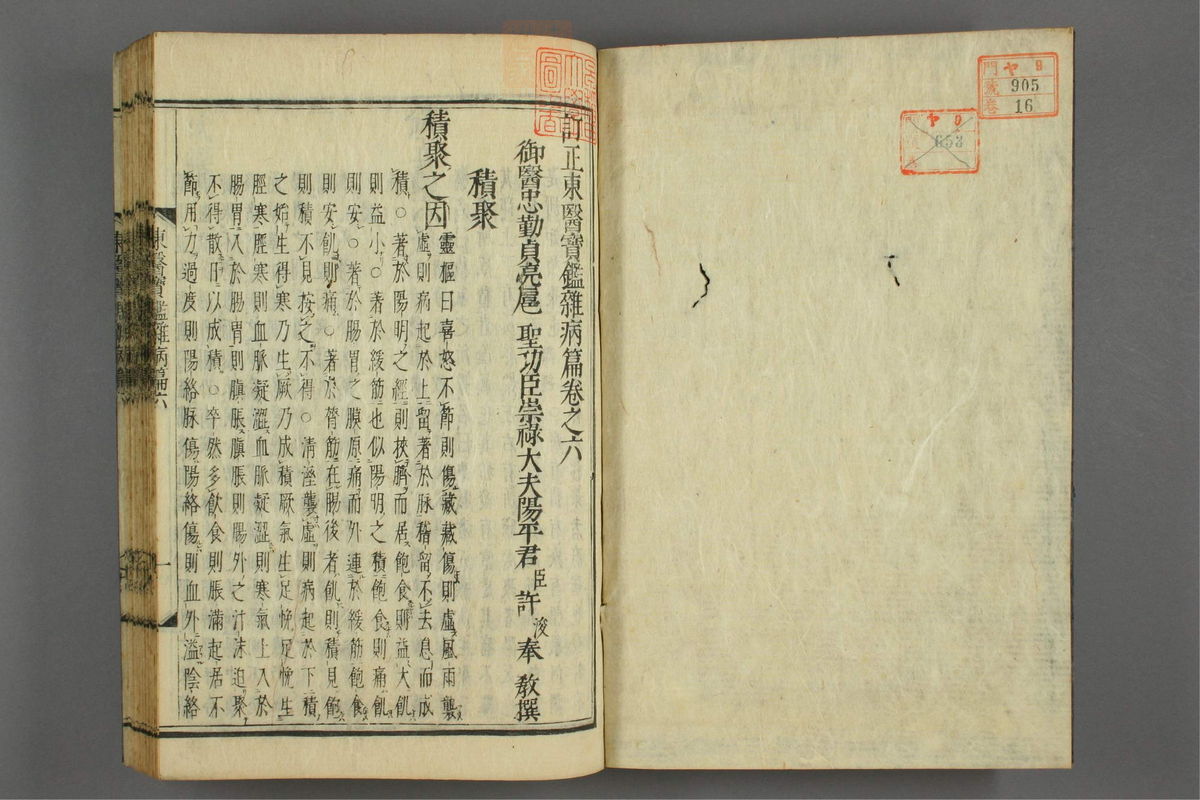 門 ヤ 日
號 905
卷 16
ヤ 日
653
訂正東醫寶鑑雜病篇卷之六
御醫忠勤貞亮扈 聖功臣崇祿大夫陽平君 臣 許 浚 奉 教撰
積聚
積聚之因 靈樞曰喜怒不節則傷藏藏傷則虛風雨襲
虛則病起於上留著於脉稽留不去息而成
積○著於陽明之經則挾臍而居飽食則益大飢
則益小○著於緩筋也似陽明之積飽食則痛飢
則安○著於腸胃之膜原痛而外連於緩筋飽食
則安飢則痛○著於膂筋在腸後者飢則積見飽
則積不見按之不得○淸溼襲虛則病起於下積
之始生得寒乃生厥乃成積厥氣生足悗足悗生
脛寒脛寒則血脉凝澀血脉凝澀則寒氣上入於
腸胃入於腸胃則䐜脹䐜脹則腸外之汁沫迫聚
不得散日以成積○卒然多飮食則脹滿起居不
節用力過度則陽絡脉傷陽絡傷則血外溢陰絡
東醫寶鑑雜病篇六
一